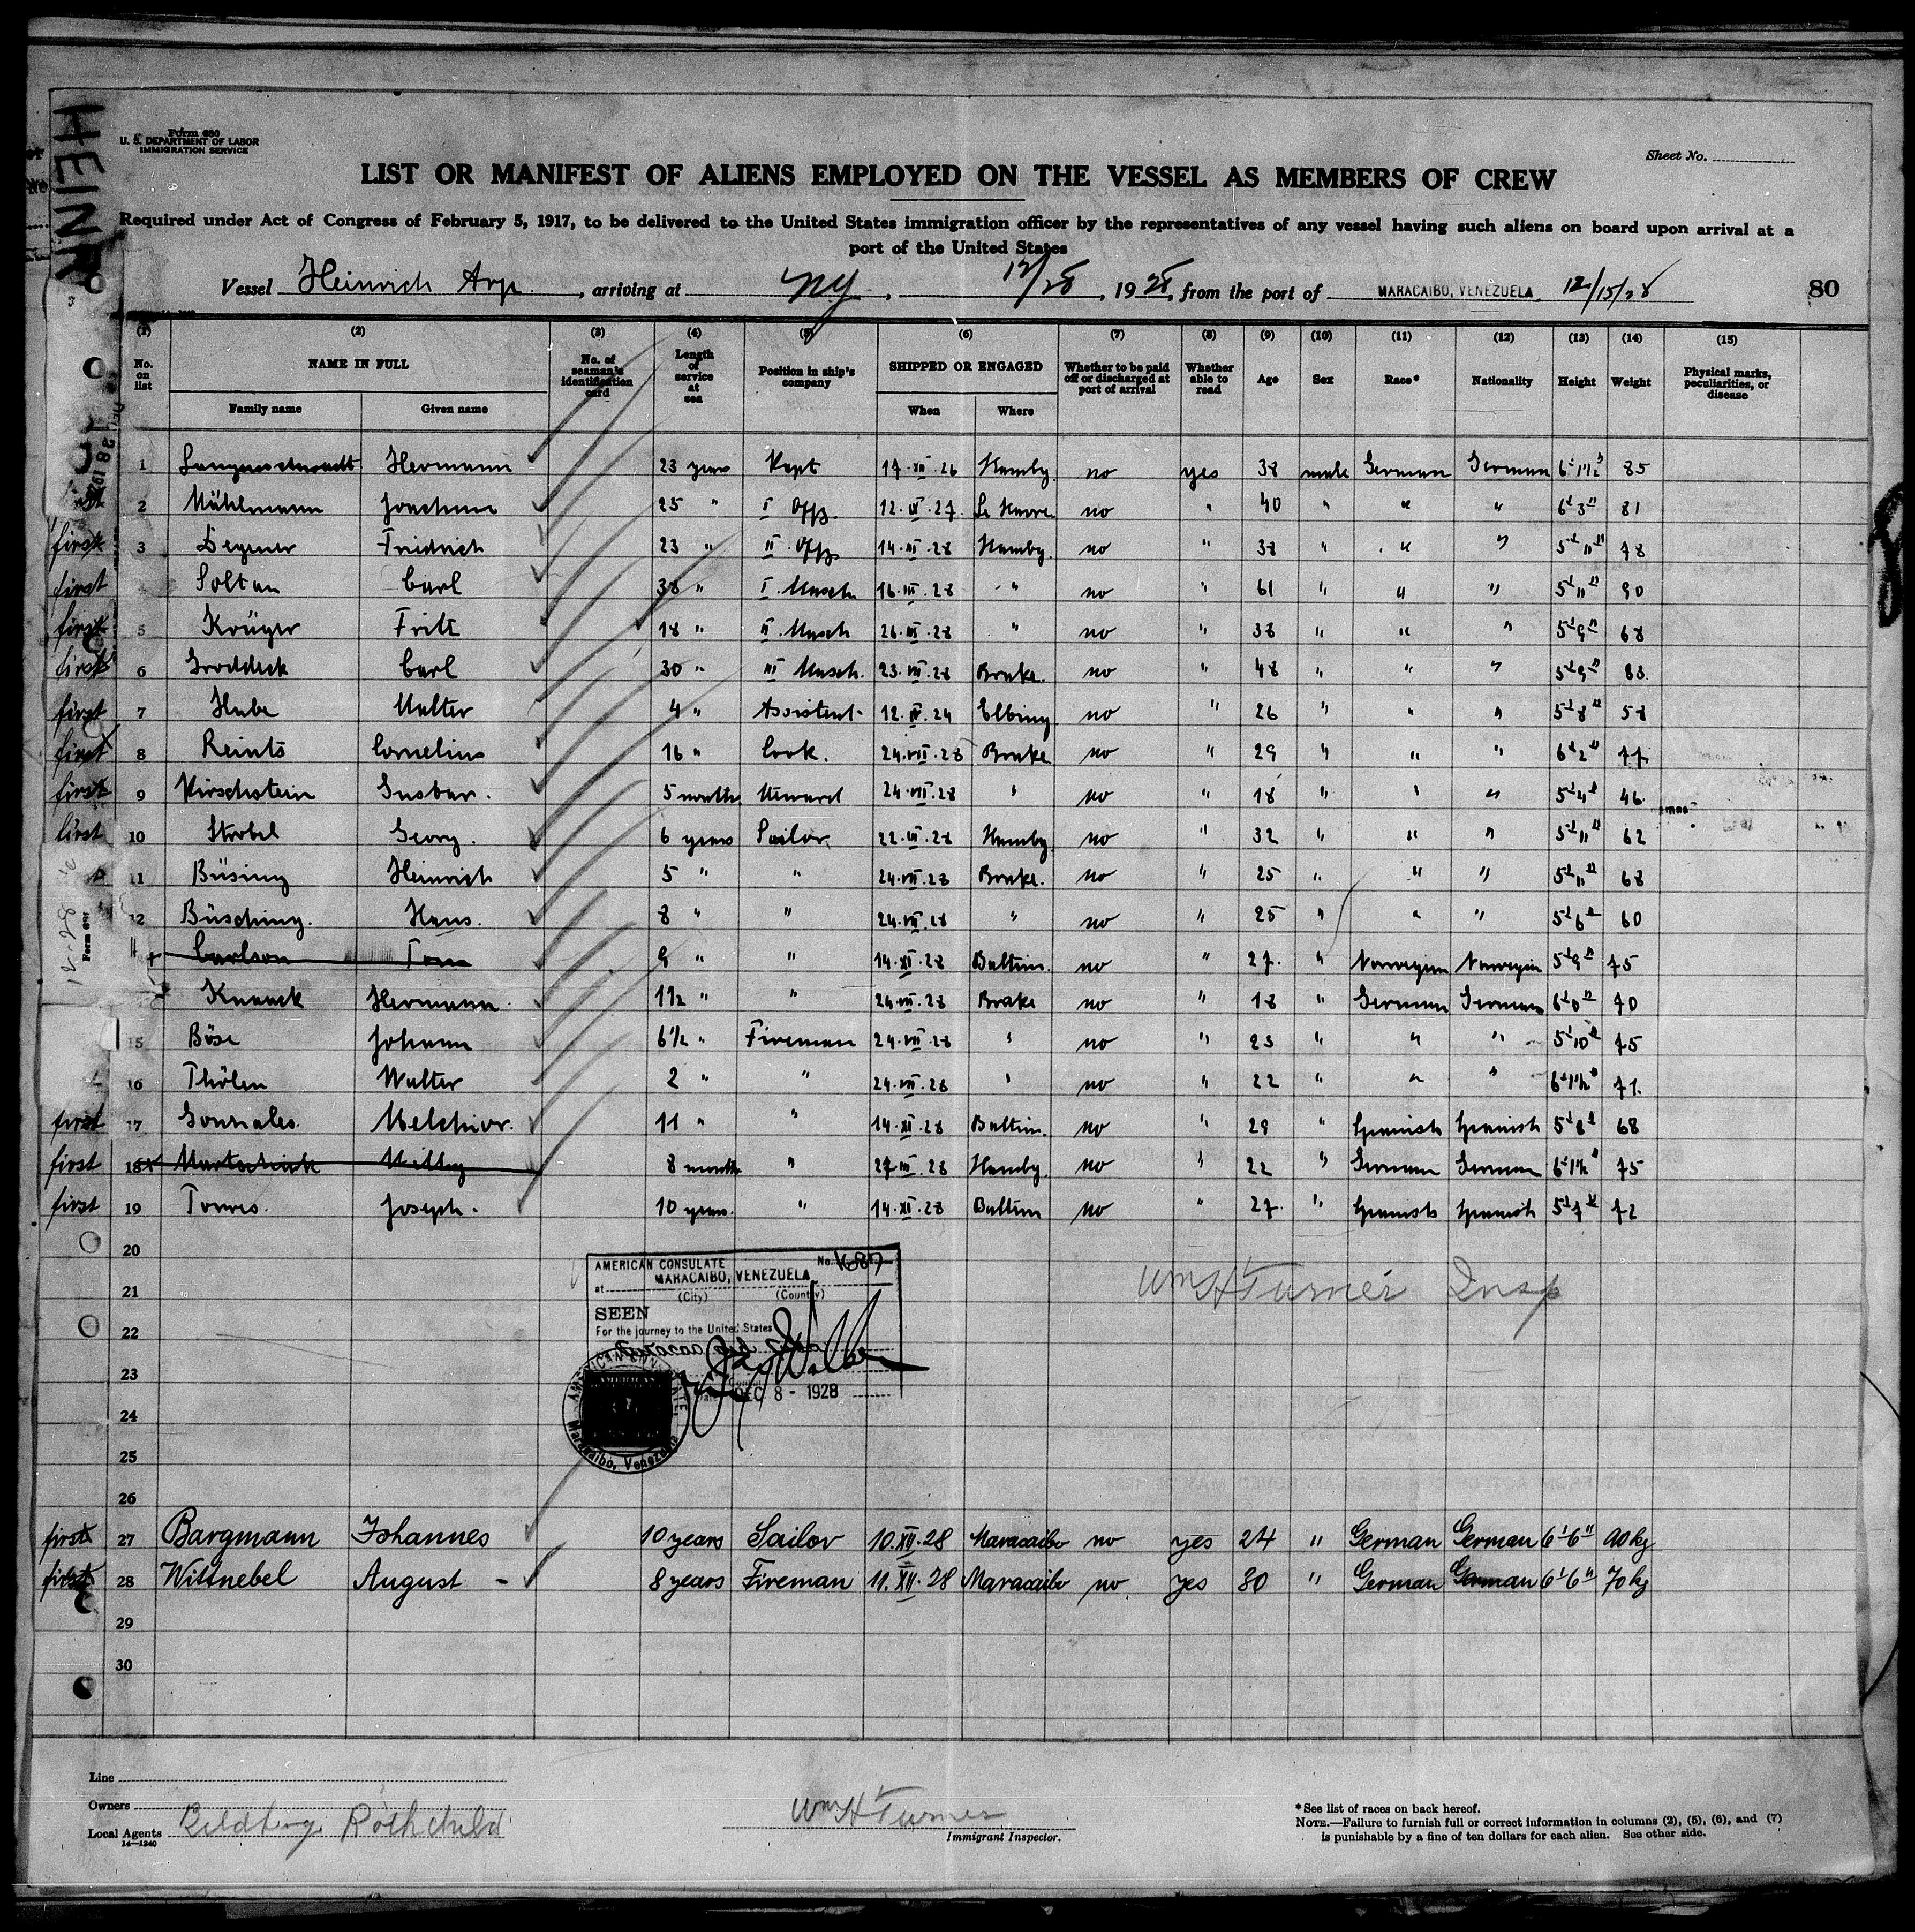 HEINR
Form 680
U. S. DEPARTMENT OF LABOR
IMMIGRATION SERVICE
Sheet No.
LIST OR MANIFEST OF ALIENS EMPLOYED ON THE VESSEL AS MEMBERS OF CREW
Required under Act of Congress of February 5, 1917, to be delivered to the United States immigration officer by the representatives of any vessel having such aliens on board upon arrival at a
port of the United States
Vessel Heinrich Arp, arriving at NY, 12/28, 1928, from the port of MARACAIBO, VENEZUELA 12/15/28 80
(1) (2) (3) (4) (5) (6) (7) (8) (9) (10) (11) (12) (13) (14) (15)
No. on list NAME IN FULL No. of seaman's identification card Length of service at sea Position in ship's company SHIPPED OR ENGAGED Whether to be paid off or discharged at port of arrival Whether able to read Age Sex Race* Nationality Height Weight Physical marks, peculiarities, or disease
Family name Given name When Where
1 Hermann 23 years Kapt 17.XII.26 Hambg. no yes 38 male German German 6'1½" 85
2 Mühlmann Joachim 25 " I Offz. 12.IX.27. Le Havre no " 40 " " " 6'3" 81
first 3 Degener Friedrich 23 " II Offz. 14.III.28 Hambg. no " 38 " " " 5'11" 78
first Soltau Carl 38 " I. Masch. 16.III.28 " no " 61 " " " 5'11" 90
first 5 Krüger Fritz 18 " II. Masch 26.III.28 " no " 38 " " " 5'9" 68
first 6 Groddeck Carl 30 " III Masch. 23.VII.28 Brake. no " 48 " " " 5'9" 83.
first 7 Habe Walter 4 " Assistent 12.IV.24 Elbing no " 26 " " " 5'8" 58
first 8 Reints Cornelius 16 " Cook. 24.VII.28 Brake no " 29 " " " 6'2" 77.
first 9 Kirschstein Gustav. 5 months Steward 24.VII.28 " no " 18 " " " 5'4" 46.
first 10 Strobel Georg. 6 years Sailor. 22.III.28 Hambg. no " 32 " " " 5'11" 62
11 Büsing Heinrich 5 " " 24.VII.28 Brake. no " 25 " " " 5'11" 68
12 Büsching. Hans. 8 " " 24.VII.28 " no " 25 " " " 5'6" 60
Carlson Tom 9 " " 14.XI.28 Baltim. no " 27. " Norwegian Norwegian 5'9" 75
Knaack Hermann. 1½ " " 24.VII.28 Brake no " 18 " German German 6'0" 70
15 Böse Johann 6½ " Fireman 24.VII.28 " no " 23 " " " 5'10" 75
16 Thölen Walter 2 " " 24.VII.28 " no " 22 " " " 6'1½" 71.
first 17 Gonzales. Melchior. 11 " " 14.XI.28 Baltim. no " 29 " Spanish Spanish 5'8" 68
first 18 Willy 8 months " 27.III.28 Hambg. no " 22 " German German 6'1½" 75
first 19 Torres. Joseph. 10 years. " 14.XI.28 Baltim no " 27. " Spanish Spanish 5'7" 72
20
21
22
23
24
25
26
AMERICAN CONSULATE No. 1687
at MARACAIBO, VENEZUELA
(City) (Country)
SEEN
For the journey to the United States
DEC 8 - 1928
Maracaibo, Venezuela
Wm H Turner Insp
first 27 Bargmann Johannes 10 years Sailor 10.XII.28 Maracaibo no yes 24 " German German 6'6" 90 kg
first 28 Wittnebel August - 8 years Fireman 11.XII.28 Maracaibo no. yes 30 " German German 6'6" 70 kg
29
30
Line
Owners
Local Agents Rothchild
14—1240
Wm H Turner
Immigrant Inspector.
*See list of races on back hereof.
NOTE.—Failure to furnish full or correct information in columns (2), (5), (6), and (7)
is punishable by a fine of ten dollars for each alien. See other side.